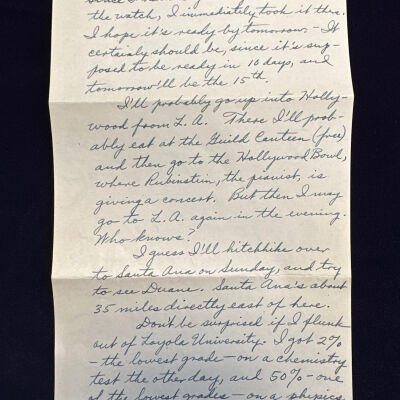 the watch, I immediately took it thre.
I hope it's ready by tomorrow. - It
certainly should be, since it's sup-
posed to be ready in 10 days, and
tomorrow'll be the 15th.
I'll probably go up into Holly-
wood from L.A. There I'll prob-
ably eat at the Guild Canteen (free)
and then go to the Hollywood Bowl,
where Rubinstein, the pianist, is
giving a concert. But then I may
go to L.A. again in the evening.
Who knows?
I guess I'll hitchhike over
to Santa Ana on Sunday, and try
to see Duane. Santa Ana's about
35 miles directly east of here.
Don't be surprised if I flunk
out of Loyola University. I got 2%
- the lowest grade - on a chemistry
test the other day, and 50% - one
of the lowest grades - on a physics